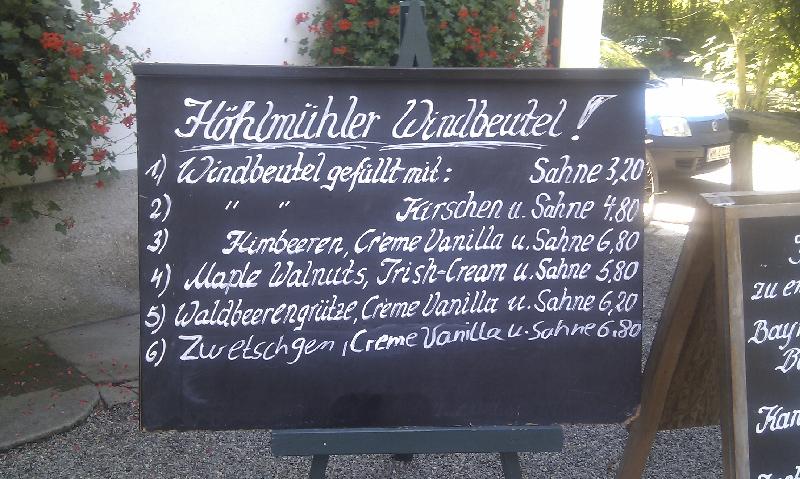 Höhlmühler Windbeutel!
1) Windbeutel gefüllt mit: Sahne 3,20
2) " " Kirschen u. Sahne 4.80
3) Himbeeren, Crème Vanilla u. Sahne 6,80
4) Maple Walnuts, Irish-Cream u. Sahne 5,80
5) Waldbeerengrütze, Crème Vanilla u. Sahne 6,20
6) Zwretschgen, Creme Vanilla u. Sahne 6.80
zu